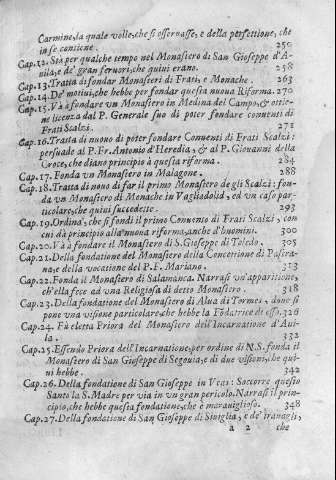 Carmine, la quale volle, che si osseruasse, e della perfettione, che
in se contiene. 250
Cap.12. Stà per qualche tempo nel Monastero di San Gioseppe d'A-
uila, e de' gran feruori, che quiui erano. 258
Cap.13. Tratta di fondar Monasteri di Frati, e Monache. 263
Cap.14. De' motiui, che hebbe per fondar questa nuoua Riforma. 270
Cap.15. Và à fondare vn Monastero in Medina del Campo, & ottie-
ne licenza dal P. Generale suo di poter fondare conuenti di
Frati Scalzi. 271
Cap.16. Tratta di nuouo di poter fondare Conuenti di Frati Scalzi:
persuade al P. Fr. Antonio d'Heredia, & al P. Giouanni della
Croce, che diano principio à questa riforma. 284
Cap.17. Fonda vn Monastero in Malagone. 288
Cap.18. Tratta di nuouo di far il primo Monastero degli Scalzi: fon-
da vn Monastero di Monache in Vagliadolid, ed vn caso par-
ticolare, che quiui succedette. 293
Cap.19. Ordina, che si fondi il primo Conuento di Frati Scalzi, con
cui dà principio alla nuoua riforma, anche d'huomini. 300
Cap.20. Và à fondare il Monastero di S. Gioseppe di Toledo. 305
Cap.21. Della fondatione del Monastero della Concettione di Pastra-
na, e della vocatione del P. F. Mariano. 313
Cap.22. Fonda il Monastero di Salamanca. Narrasi vn'apparitione,
ch'ella fece ad vna Religiosa di detto Monastero. 318
Cap.23. Della fondatione del Monastero di Alua di Tormes, doue si
pone vna visione particolare, che hebbe la Fõdatrice di esso. 326
Cap.24. Fù eletta Priora del Monastero dell'Incarnatione d'Aui-
la. 332
Cap.25. Essendo Priora dell'Incarnatione, per ordine di N.S. fonda il
Monastero di San Gioseppe di Segouia, e di due visioni, che qui-
ui hebbe. 342
Cap.26. Della fondatione di San Gioseppe in Veas: Soccorre questo
Santo la S. Madre per via in vn gran pericolo. Narrasi il prin-
cipio, che hebbe questa fondatione, che è marauiglioso. 348
Cap.27. Della fondatione di San Gioseppe di Siuiglia, e de' trauagli,
a 2 che